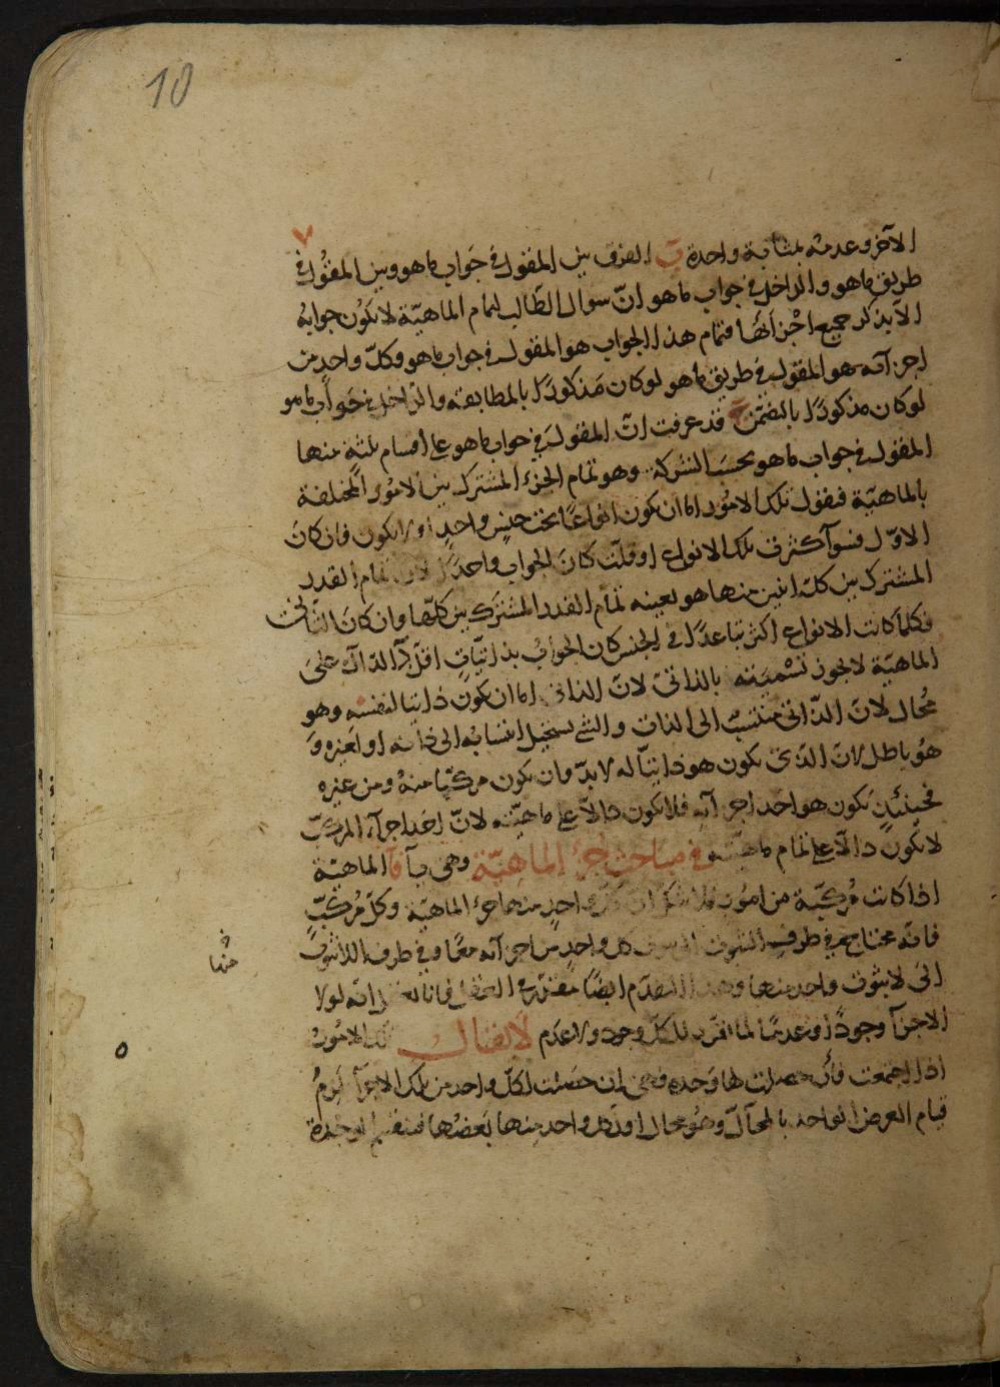 10
الآخر وعدمه بمثابة واحدة ب الفرق بين المقول في جواب ما هو وبين المقول في
طريق ما هو والداخل في جواب ما هو ان سوال الطالب لتمام الماهيّة لا يكون جوابه
الا بذكر جميع اجزائها فتمام هذا الجواب هو المقول في جواب ما هو وكلّ واحد من
اجزآئه هو المقول في طريق ما هو لو كان مذكورًا بالمطابقة والداخل في جواب ما هو
لو كان مذكورًا بالتضمّن ج قد عرفت انّ المقول في جواب ما هو على اقسام ثلثة منها
المقول في جواب ما هو بحسب الشركة وهو تمام الجزء المشترك بين الامور المختلفة
بالماهيّة فنقول تلك الامور اما ان يكون انواعًا تحت جنس واحد او لا يكون فان كان
الاوّل فسوآ كثرت تلك الانواع او قلّت كان الجواب واحدًا لان تمام القدر
المشترك بين كلّ اثنين منها هو بعينه تمام القدر المشترك بين كلّها وان كان الثاني
فكلما كانت الانواع اكثر تباعدًا في الجنس كان الجواب بذاتيّات اقلّ د الدّالّ على
الماهيّة لا يجوز تسميته بالذاتي لانّ الذاتي اما ان يكون ذاتيا لنفسه وهو
محال لانّ الذّاتي منتسب الى الذات والشي يستحيل انتسابه الى ذاته او لغيره و
هو باطل لانّ الذي يكون هو ذاتيّا له لا بدّ وان يكون مركّبا منه ومن غيره
فحينئذٍ يكون هو احد اجزآئه فلا يكون دالّا على ماهيّته لانّ احد اجزآء المركّب
لا يكون دالّا على تمام ماهيّته في مباحث جزء الماهيّة وهي يـآ آ الماهيّة
اذا كانت مركّبة من امور فلا شكّ ان كلّ واحد منها جزء الماهيّة وكلّ مركّب
فانّه محتاج في طرف الثبوت الى ثبوت كل واحد من اجزآئه معًا وفي طرف اللاثبوت
الى لا ثبوت واحد منها وهذا التقدّم ايضًا مقرّر في العقل فانا نعقل انه لولا
الاجزآ وجودًا وعدمًا لما تقرّر للكلّ وجود ولا عدم لا يقال تلك الامور
اذا اجتمعت فان حصلت لها وحدة فهي ان حصلت لكلّ واحد من تلك الاجزآ لزم
قيام العرض الواحد بالمحالّ وهو محال او لكل واحد منها بعضها فتنقسم الوحدة